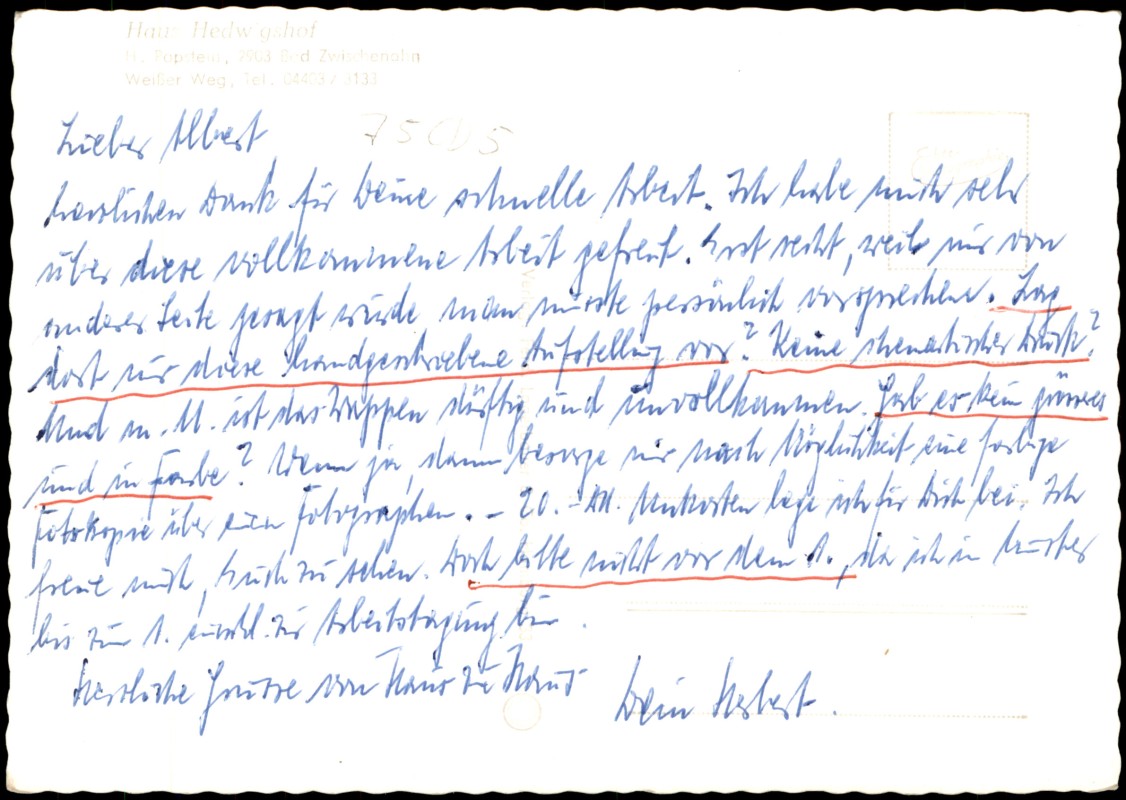 Haus Hedwigshof
H. Papstein, 2903 Bad Zwischenahn
Weißer Weg, Tel. 04403 / 3133
Lieber Albert,
herzlichen Dank für Deine schnelle Arbeit. Ich habe mich sehr
über diese vollkommene Arbeit gefreut. Erst recht, weil mir von
anderer Seite gesagt wurde man müsste persönlich vorsprechen. Lag
dort nur diese handgeschriebene Aufstellung vor? Keine Druck?
Und m. M. ist das Wappen dürftig und unvollkommen. Gab es kein
und in Farbe? Wenn ja, dann besorge mir nach Möglichkeit eine farbige
Fotokopie über einen Fotographen. – 20.- DM. Unkosten lege ich für Dich bei. Ich
freue mich, Euch zu sehen. Doch bitte nicht vor dem 1., da ich in
bis zum 1. zur Arbeitstagung bin.
Herzliche Grüsse von Haus zu Haus
Dein Herbert.